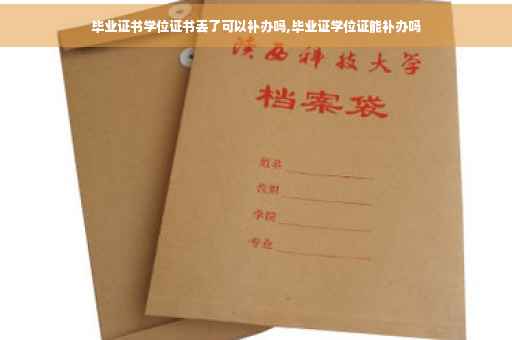 毕业证书学位证书丢了可以补办吗,毕业证学位证能补办吗
陕西科技大学
档案袋
姓名
学院
专业